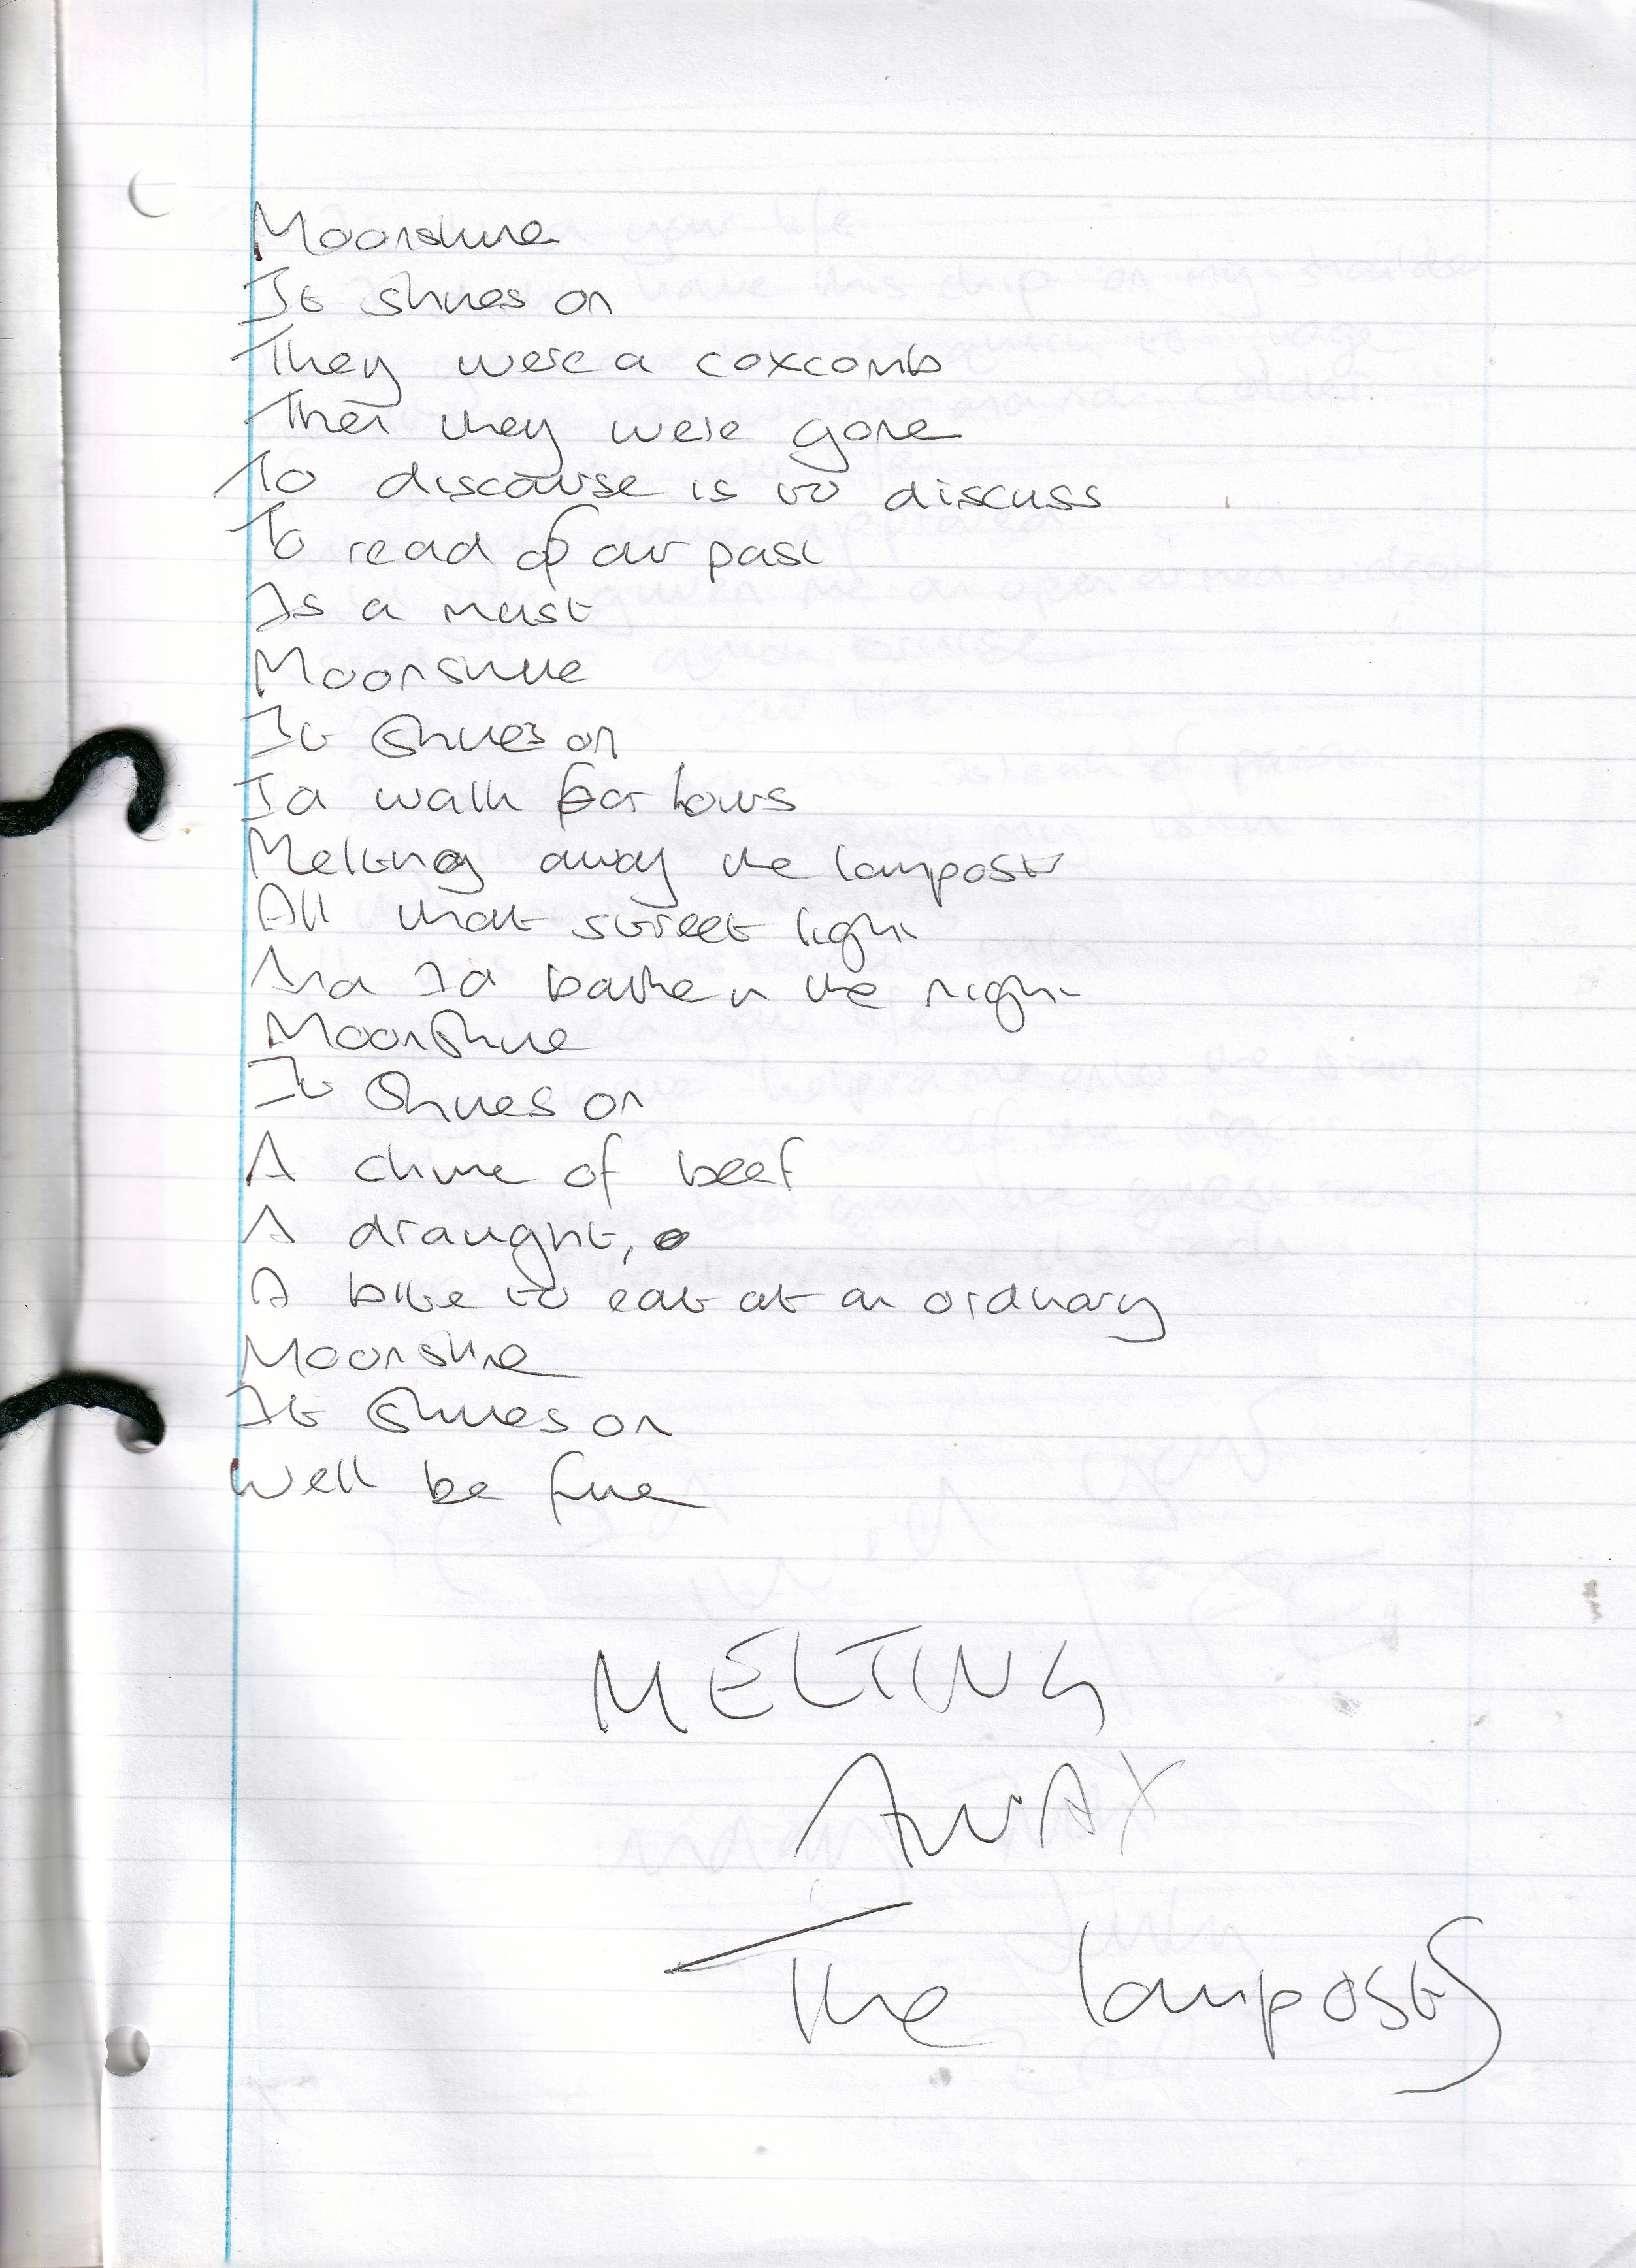 Moonshine
It shines on
They were a coxcomb
Then they were gone
To discourse is to discuss
To read of our past
Is a must
Moonshine
It shines on
Id walk for hours
Melting away the lamposts
All that street light
And Id bathe in the night
Moonshine
It shines on
A chine of beef
A draught,
A bite to eat at an ordinary
Moonshine
It shines on
Well be fine
MELTING
AWAY
The lamposts